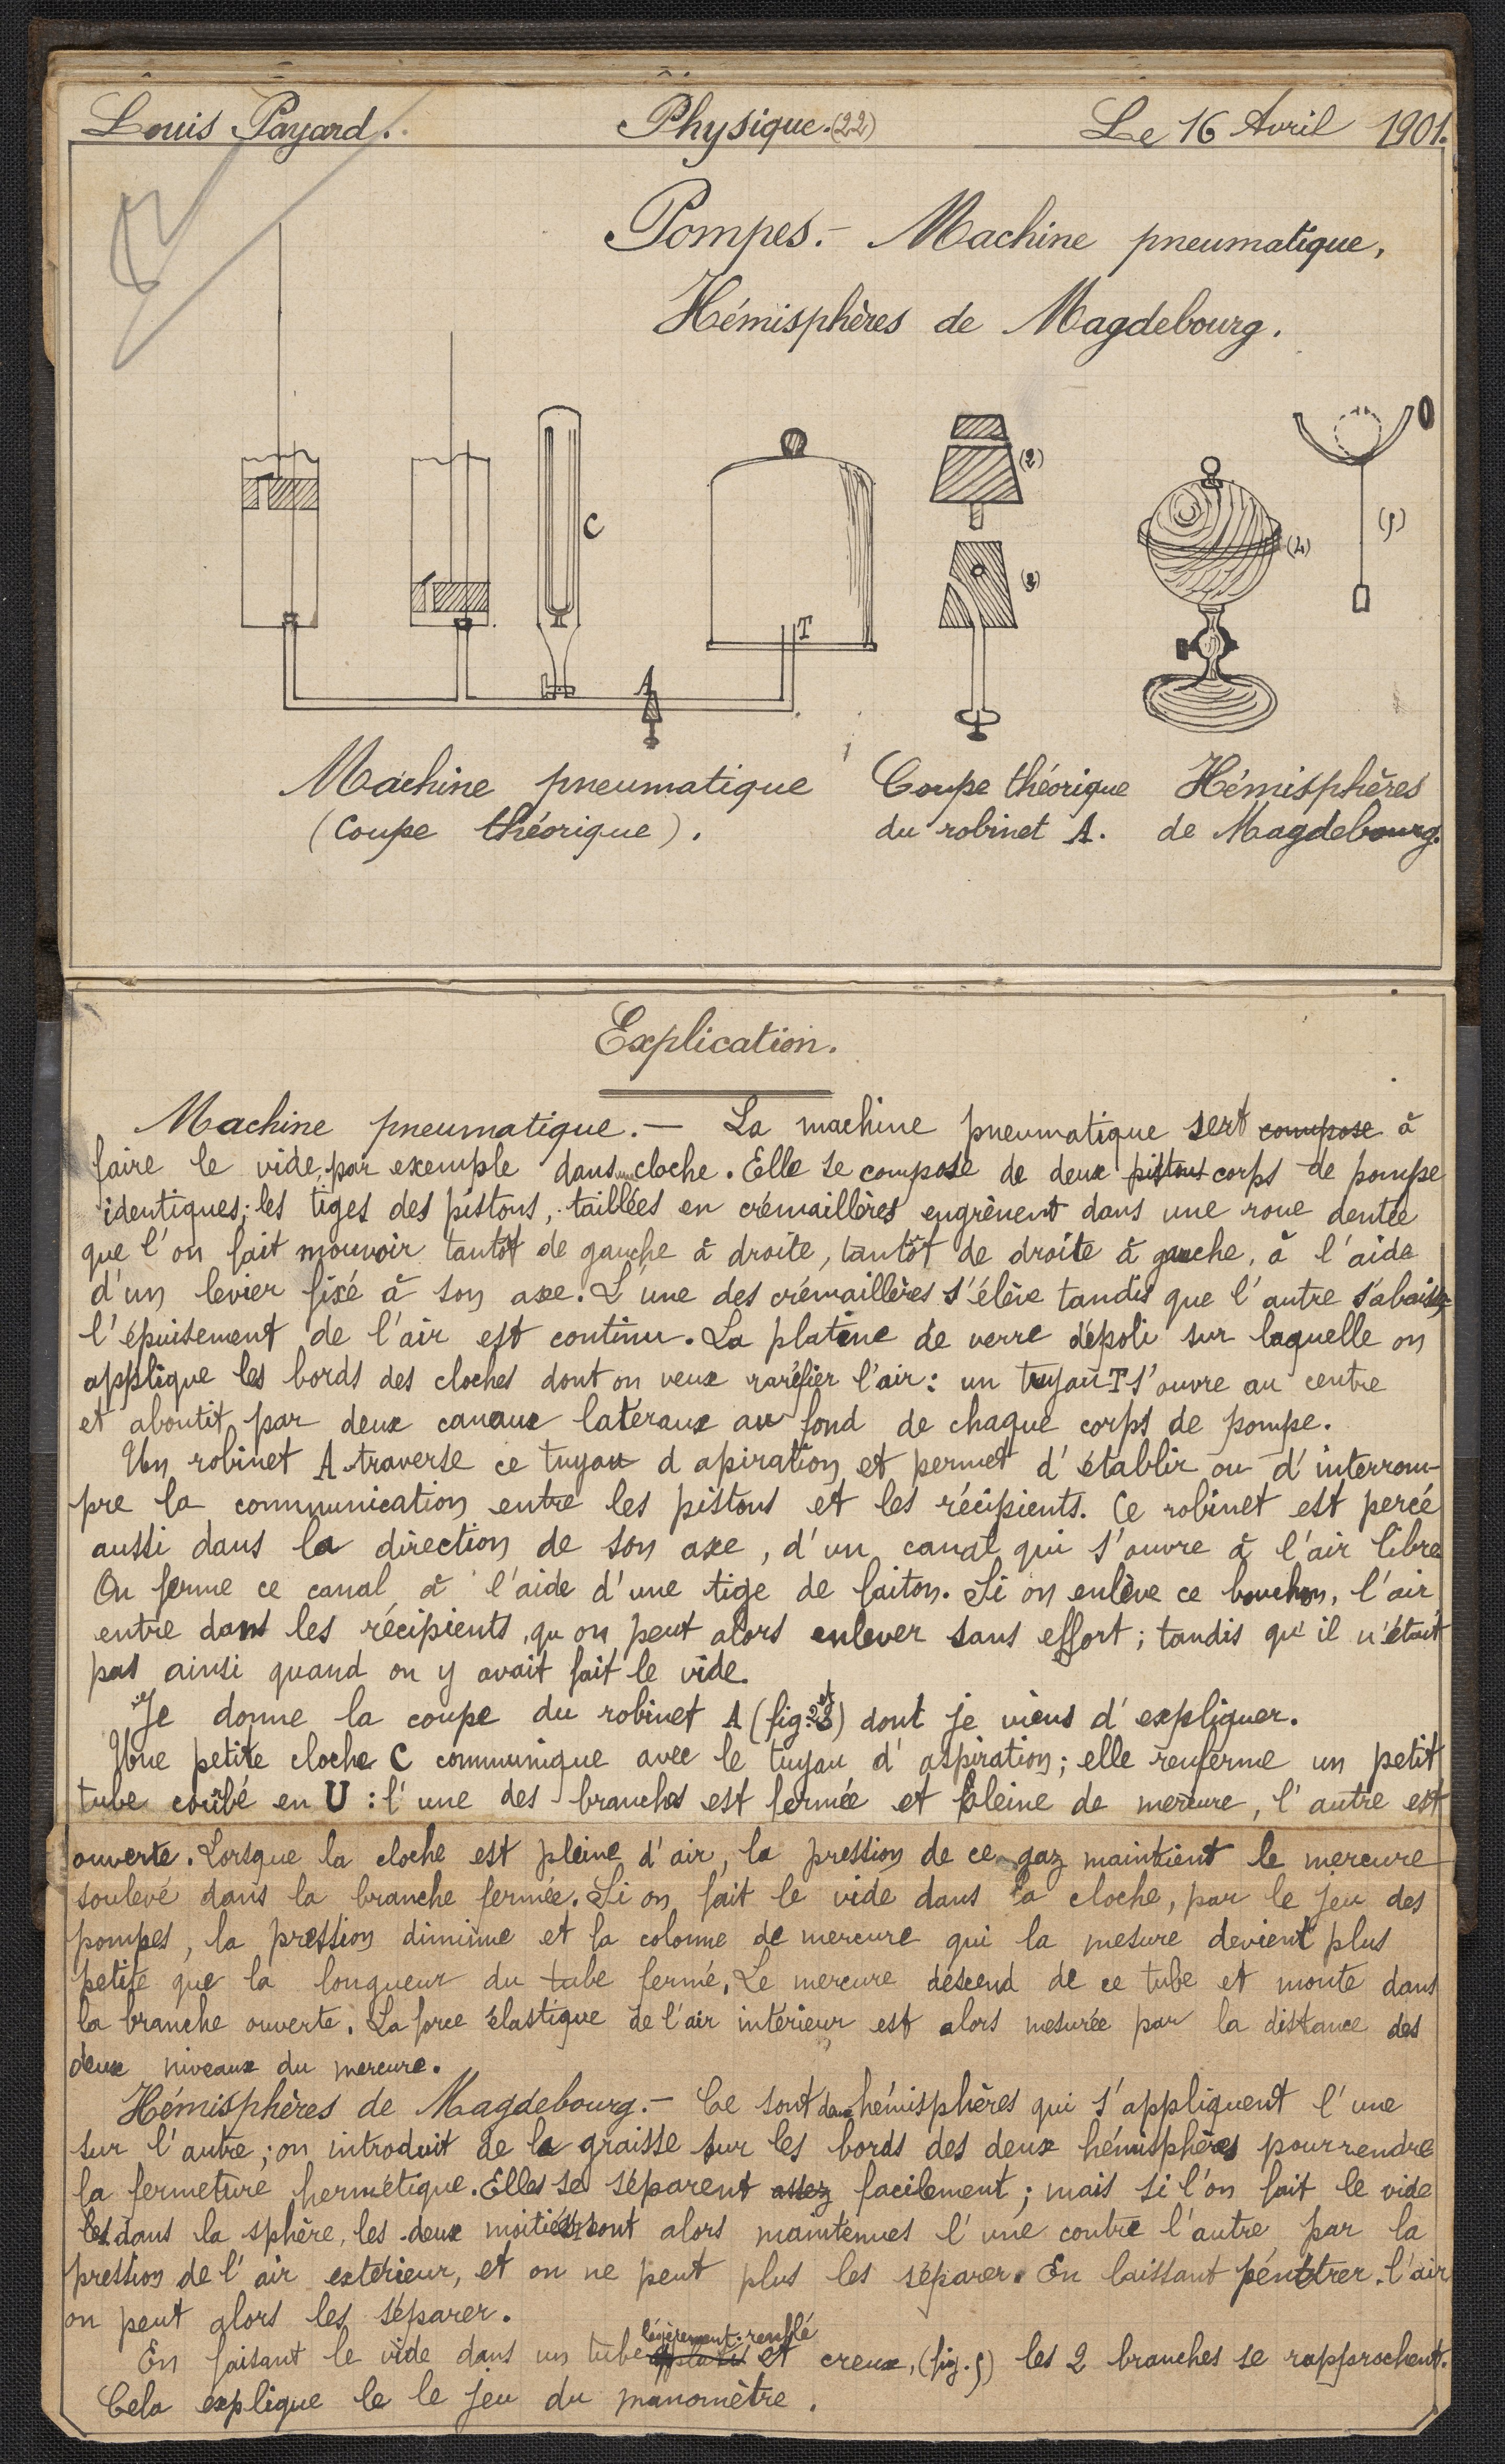 Louis Payard. Physique. (22) Le 16 Avril 1901.
Pompes. - Machine pneumatique,
Hémisphères de Magdebourg.
C
T
A
(2)
(3)
(4)
(5)
Machine pneumatique
(Coupe théorique).
Coupe théorique
du robinet A.
Hémisphères
de Magdebourg.
Explication.
Machine pneumatique. - La machine pneumatique sert compose à
faire le vide, par exemple dans une cloche. Elle se compose de deux pistons corps de pompe
identiques; les tiges des pistons, taillées en crémaillères engrènent dans une roue dentée
que l'on fait mouvoir tantôt de gauche à droite, tantôt de droite à gauche, à l'aide
d'un levier fixé à son axe. L'une des crémaillères s'élève tandis que l'autre s'abaisse
l'épuisement de l'air est continu. La platine de verre dépoli sur laquelle on
applique les bords des cloches dont on veux raréfier l'air: un tuyau T s'ouvre au centre
et aboutit par deux canaux latéraux au fond de chaque corps de pompe.
Un robinet A traverse ce tuyau d apiration et permet d'établir ou d'interrom-
pre la communication entre les pistons et les récipients. Ce robinet est percé
aussi dans la direction de son axe, d'un canal qui s'ouvre à l'air libre
On ferme ce canal à l'aide d'une tige de laiton. Si on enlève ce bouchon, l'air
entre dans les récipients, qu on peut alors enlever sans effort; tandis qu'il n'était
pas ainsi quand on y avait fait le vide.
Je donne la coupe du robinet A (fig. 2 et 3) dont je viens d'expliquer.
Une petite cloche C communique avec le tuyau d'aspiration; elle renferme un petit
tube coûbé en U : l'une des branches est fermée et pleine de mercure, l'autre est
ouverte. Lorsque la cloche est pleine d'air, la pression de ce gaz maintient le mercure
soulevé dans la branche fermée. Si on fait le vide dans la cloche, par le jeu des
pompes, la pression diminue et la colonne de mercure qui la mesure devient plus
petite que la longueur du tube fermé, Le mercure descend de ce tube et monte dans
la branche ouverte. La force élastique de l'air intérieur est alors mesurée par la distance des
deux niveaux du mercure.
Hémisphères de Magdebourg. - Ce sont deux hémisphères qui s'appliquent l'une
sur l'autre; on introduit de la graisse sur les bords des deux hémisphères pour rendre
la fermeture hermétique. Elles se séparent assez facilement; mais si l'on fait le vide
les dans la sphère, les deux moitiés sont alors maintenues l'une contre l'autre par la
pression de l'air extérieur, et on ne peut plus les séparer. En laissant pénétrer l'air
on peut alors les séparer.
légèrement renflé
En faisant le vide dans un tube aplati et creux, (fig. 5) les 2 branches se rapprochent.
Cela explique le le jeu du manomètre.